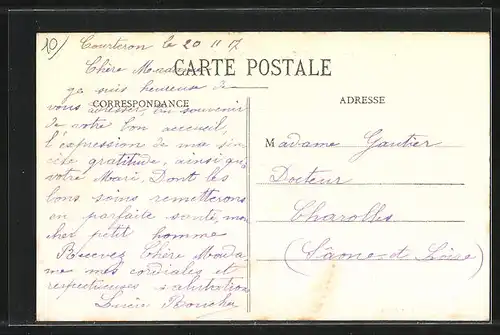 10) Courteron le 20 11 17
Chère Madame
CARTE POSTALE
CORRESPONDANCE
ADRESSE
je suis heureuse de
vous adresser, en souvenir
de votre bon accueil,
l'expression de ma sin-
cère gratitude, ainsi qu'à
votre Mari, Dont les
bons soins remetterons
en parfaite santé, mon
cher petit homme
Recevez Chère Mada
me mes cordiales et
respectueuses salutations
Lucie Boucher
Madame Gautier
Docteur
Charolles
(Sâone-et Loire)